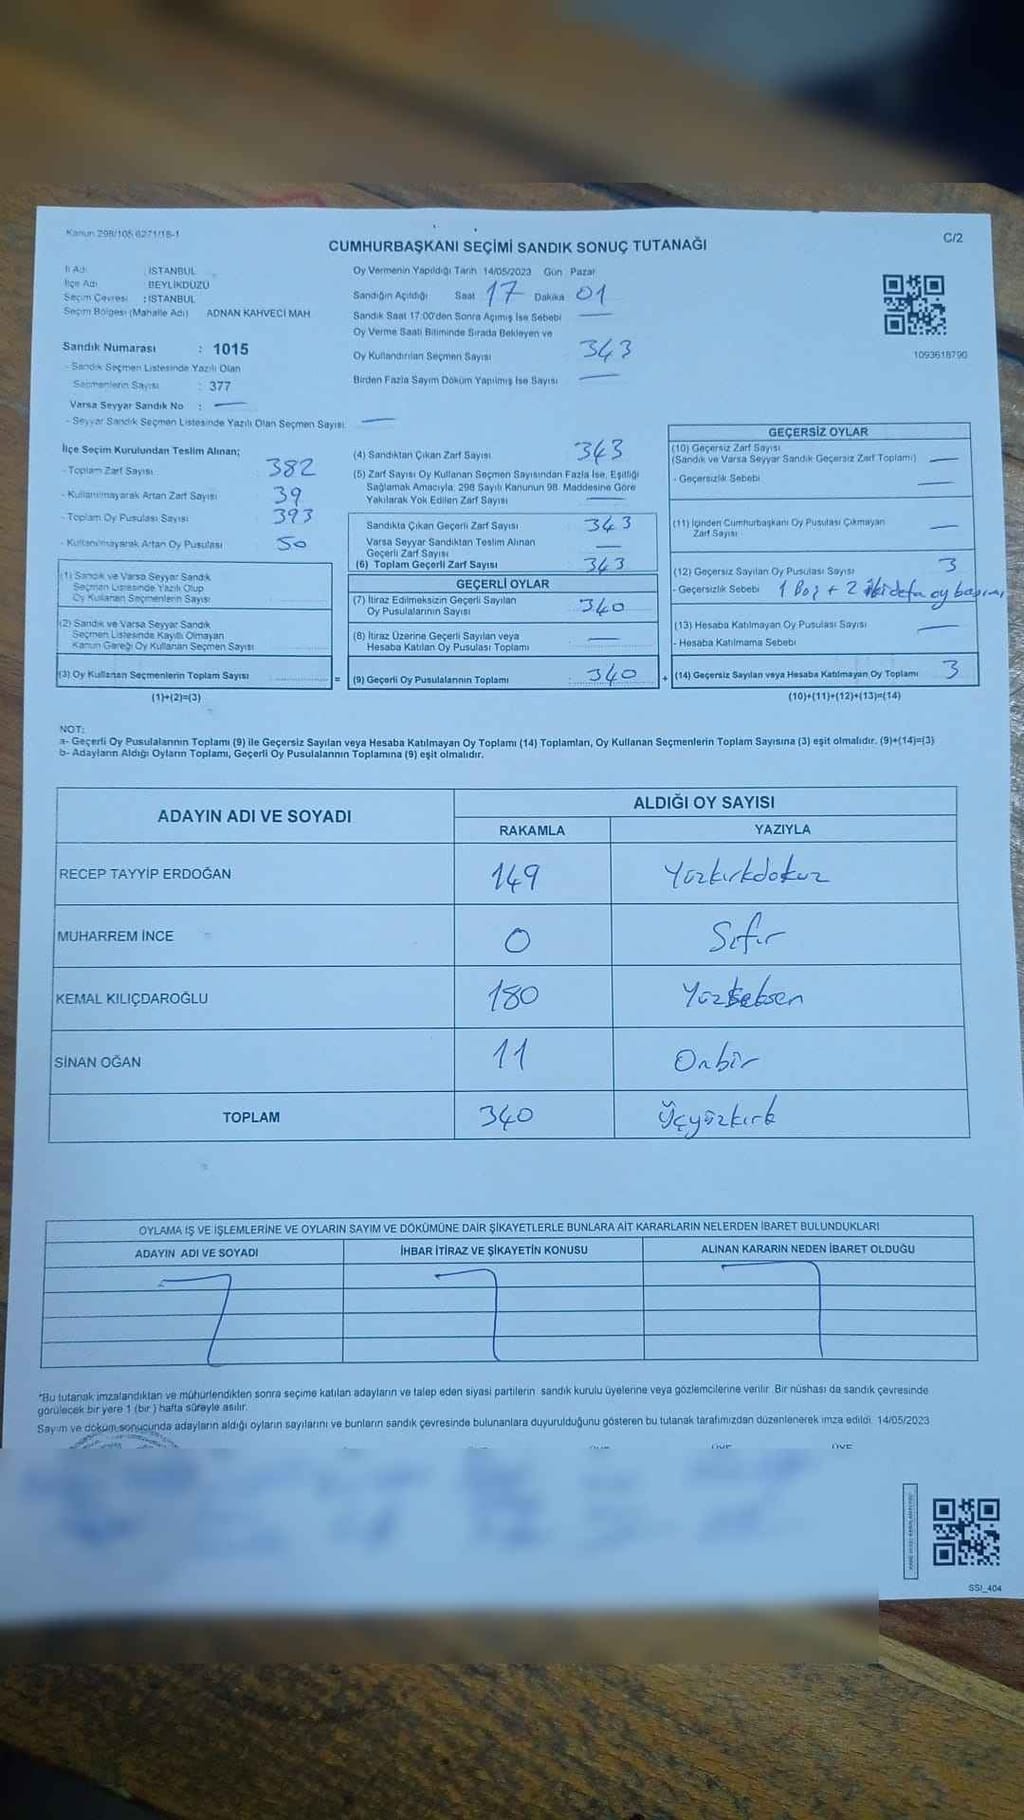 Kanun 298/105 6271/18-1
CUMHURBAŞKANI SEÇİMİ SANDIK SONUÇ TUTANAĞI
C/2
İl Adı : İSTANBUL
İlçe Adı : BEYLİKDÜZÜ
Seçim Çevresi : İSTANBUL
Seçim Bölgesi (Mahalle Adı) ADNAN KAHVECİ MAH
Sandık Numarası : 1015
- Sandık Seçmen Listesinde Yazılı Olan
Seçmenlerin Sayısı : 377
Varsa Seyyar Sandık No : —
- Seyyar Sandık Seçmen Listesinde Yazılı Olan Seçmen Sayısı: —
Oy Vermenin Yapıldığı Tarih 14/05/2023 Gün Pazar
Sandığın Açıldığı Saat 17 Dakika 01
Sandık Saat 17:00'den Sonra Açımış İse Sebebi —
Oy Verme Saati Bitiminde Sırada Bekleyen ve
Oy Kullandırılan Seçmen Sayısı 343
Birden Fazla Sayım Döküm Yapılmış İse Sayısı —
1093618790
İlçe Seçim Kurulundan Teslim Alınan;
- Toplam Zarf Sayısı 382
- Kullanılmayarak Artan Zarf Sayısı 39
- Toplam Oy Pusulası Sayısı 393
- Kullanılmayarak Artan Oy Pusulası 50
(1) Sandık ve Varsa Seyyar Sandık
Seçmen Listesinde Yazılı Olup
Oy Kullanan Seçmenlerin Sayısı
(2) Sandık ve Varsa Seyyar Sandık
Seçmen Listesinde Kayıtlı Olmayan
Kanun Gereği Oy Kullanan Seçmen Sayısı
(3) Oy Kullanan Seçmenlerin Toplam Sayısı =
(1)+(2)=(3)
(4) Sandıktan Çıkan Zarf Sayısı 343
(5) Zarf Sayısı Oy Kullanan Seçmen Sayısından Fazla İse, Eşitliği
Sağlamak Amacıyla, 298 Sayılı Kanunun 98. Maddesine Göre
Yakılarak Yok Edilen Zarf Sayısı —
Sandıkta Çıkan Geçerli Zarf Sayısı 343
Varsa Seyyar Sandıktan Teslim Alınan
Geçerli Zarf Sayısı —
(6) Toplam Geçerli Zarf Sayısı 343
GEÇERLİ OYLAR
(7) İtiraz Edilmeksizin Geçerli Sayılan
Oy Pusulalarının Sayısı 340
(8) İtiraz Üzerine Geçerli Sayılan veya
Hesaba Katılan Oy Pusulası Toplamı —
(9) Geçerli Oy Pusulalarının Toplamı : 340 +
GEÇERSİZ OYLAR
(10) Geçersiz Zarf Sayısı
(Sandık ve Varsa Seyyar Sandık Geçersiz Zarf Toplamı) —
- Geçersizlik Sebebi —
(11) İçinden Cumhurbaşkanı Oy Pusulası Çıkmayan
Zarf Sayısı —
(12) Geçersiz Sayılan Oy Pusulası Sayısı 3
- Geçersizlik Sebebi 1 Boş + 2 iki defa oy basımı
(13) Hesaba Katılmayan Oy Pusulası Sayısı —
- Hesaba Katılmama Sebebi
(14) Geçersiz Sayılan veya Hesaba Katılmayan Oy Toplamı 3
(10)+(11)+(12)+(13)=(14)
NOT:
a- Geçerli Oy Pusulalarının Toplamı (9) ile Geçersiz Sayılan veya Hesaba Katılmayan Oy Toplamı (14) Toplamları, Oy Kullanan Seçmenlerin Toplam Sayısına (3) eşit olmalıdır. (9)+(14)=(3)
b- Adayların Aldığı Oyların Toplamı, Geçerli Oy Pusulalarının Toplamına (9) eşit olmalıdır.
ADAYIN ADI VE SOYADI
ALDIĞI OY SAYISI
RAKAMLA YAZIYLA
RECEP TAYYİP ERDOĞAN 149 Yüzkırkdokuz
MUHARREM İNCE 0 Sıfır
KEMAL KILIÇDAROĞLU 180 Yüzseksen
SİNAN OĞAN 11 Onbir
TOPLAM 340 Üçyüzkırk
OYLAMA İŞ VE İŞLEMLERİNE VE OYLARIN SAYIM VE DÖKÜMÜNE DAİR ŞİKAYETLERLE BUNLARA AİT KARARLARIN NELERDEN İBARET BULUNDUKLARI
ADAYIN ADI VE SOYADI İHBAR İTİRAZ VE ŞİKAYETİN KONUSU ALINAN KARARIN NEDEN İBARET OLDUĞU
*Bu tutanak imzalandıktan ve mühürlendikten sonra seçime katılan adayların ve talep eden siyasi partilerin sandık kurulu üyelerine veya gözlemcilerine verilir. Bir nüshası da sandık çevresinde
görülecek bir yere 1 (bir) hafta süreyle asılır.
Sayım ve döküm sonucunda adayların aldığı oyların sayılarını ve bunların sandık çevresinde bulunanlara duyurulduğunu gösteren bu tutanak tarafımızdan düzenlenerek imza edildi. 14/05/2023
ÜYE ÜYE
SSI_404